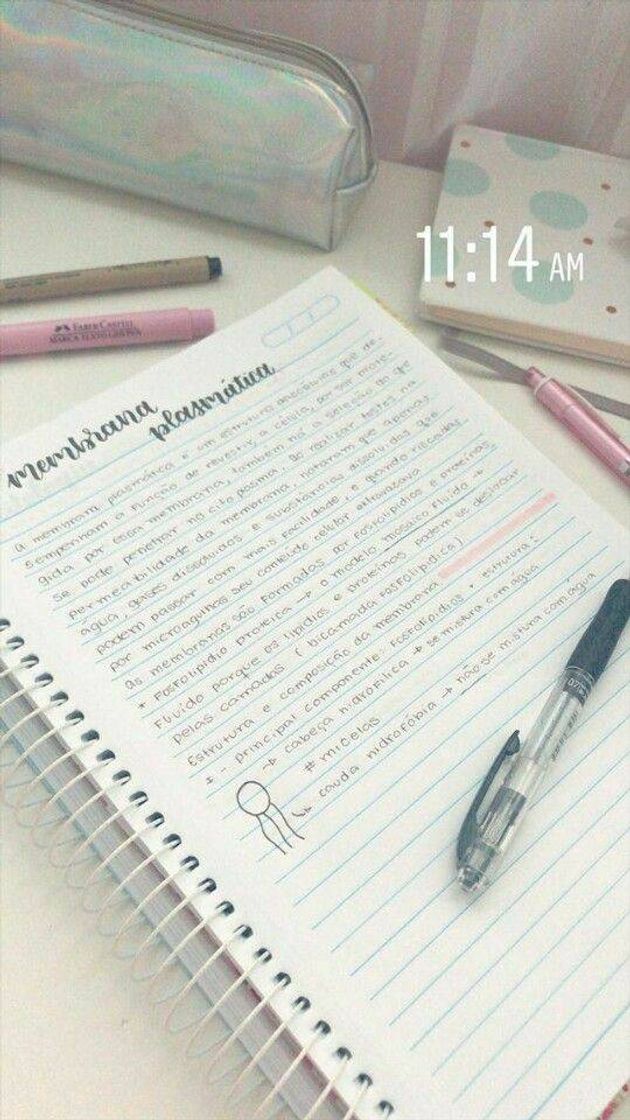 11:14 AM
FABER CASTELL
MARCA TEXTO GRIFPEN
membrana
plasmática
A membrana plasmática é um estrutura que de-
sempenham a função de revestir a célula, por ser prote-
gida por essa membrana, também há a seleção do que
se pode penetrar no citoplasma, ao realizar testes na
permeabilidade da membrana, notaram que apenas
água, gases dissolvidos e substâncias dissolvidas que
podem passar com mais facilidade, e quando riscadas
por microagulhas seu conteúdo celular extravasava
As membranas são formadas por fosfolipídios e proteínas,
* Fosfolipídio proteica → o modelo mosaico fluido →
Fluído porque os lipídios e proteínas podem se deslocar
pelas camadas (bicamada fosfolipídica)
Estrutura e composição da membrana
* - principal componente: Fosfolipídios • estrutura:
→ cabeça hidrofílica → se mistura com água
# micelas
→ cauda hidrofóbia → não se mistura com água